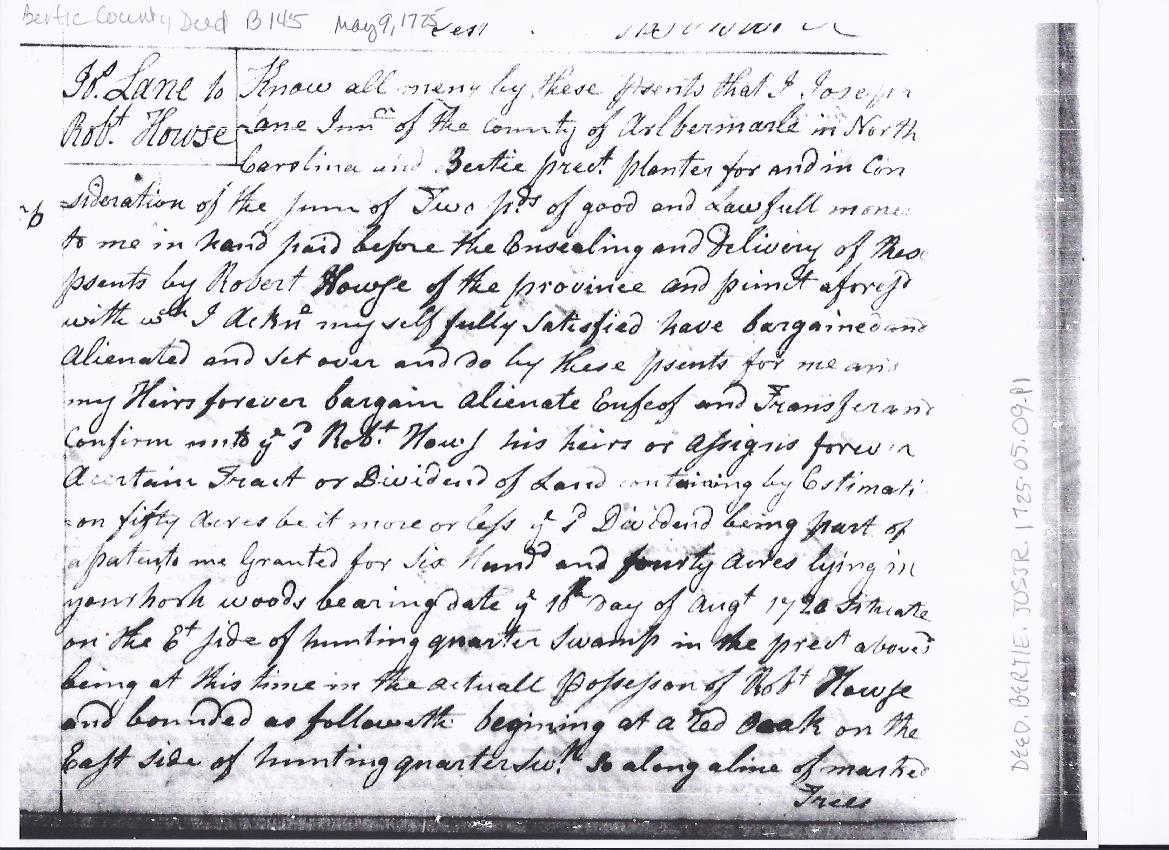 Bertie County Deed B 145 May 9, 1725
Jos. Lane to
Robt. Howse
Know all meny by these psents that I Joseph
Lane Junr of the County of Arlbermarle in North
Carolina and Bertie prect. planter for and in Con
sideration of the sum of Two pds of good and Lawfull mone
to me in hand paid before the Ensealing and Delivery of thes
psents by Robert Howse of the province and pcinct aforesd
with wch I ackn my self fully satisfied have bargained and
Alienated and set over and do by these psents for me and
my Heirs forever bargain Alienate Enfeof and Transfer and
Confirm unto ye sd Robt. Hows his heirs or assigns forever
A certain Tract or Dividend of Land containing by Estimati
on fifty acres be it more or less ye sd Dividend being part of
a patent me Granted for Six Hundd and fourty acres lying in
woods bearing date ye Day of Augt 1720 Situate
on the Et side of hunting quarter Swamp in the prect above
being at this time in the actuall possession of Robt Howse
and bounded as followeth begining at a red oak on the
East side of hunting quarter sw. So along a line of marked
Trees
DEED.BERTIE.JOSJR.1725.05.09.P1